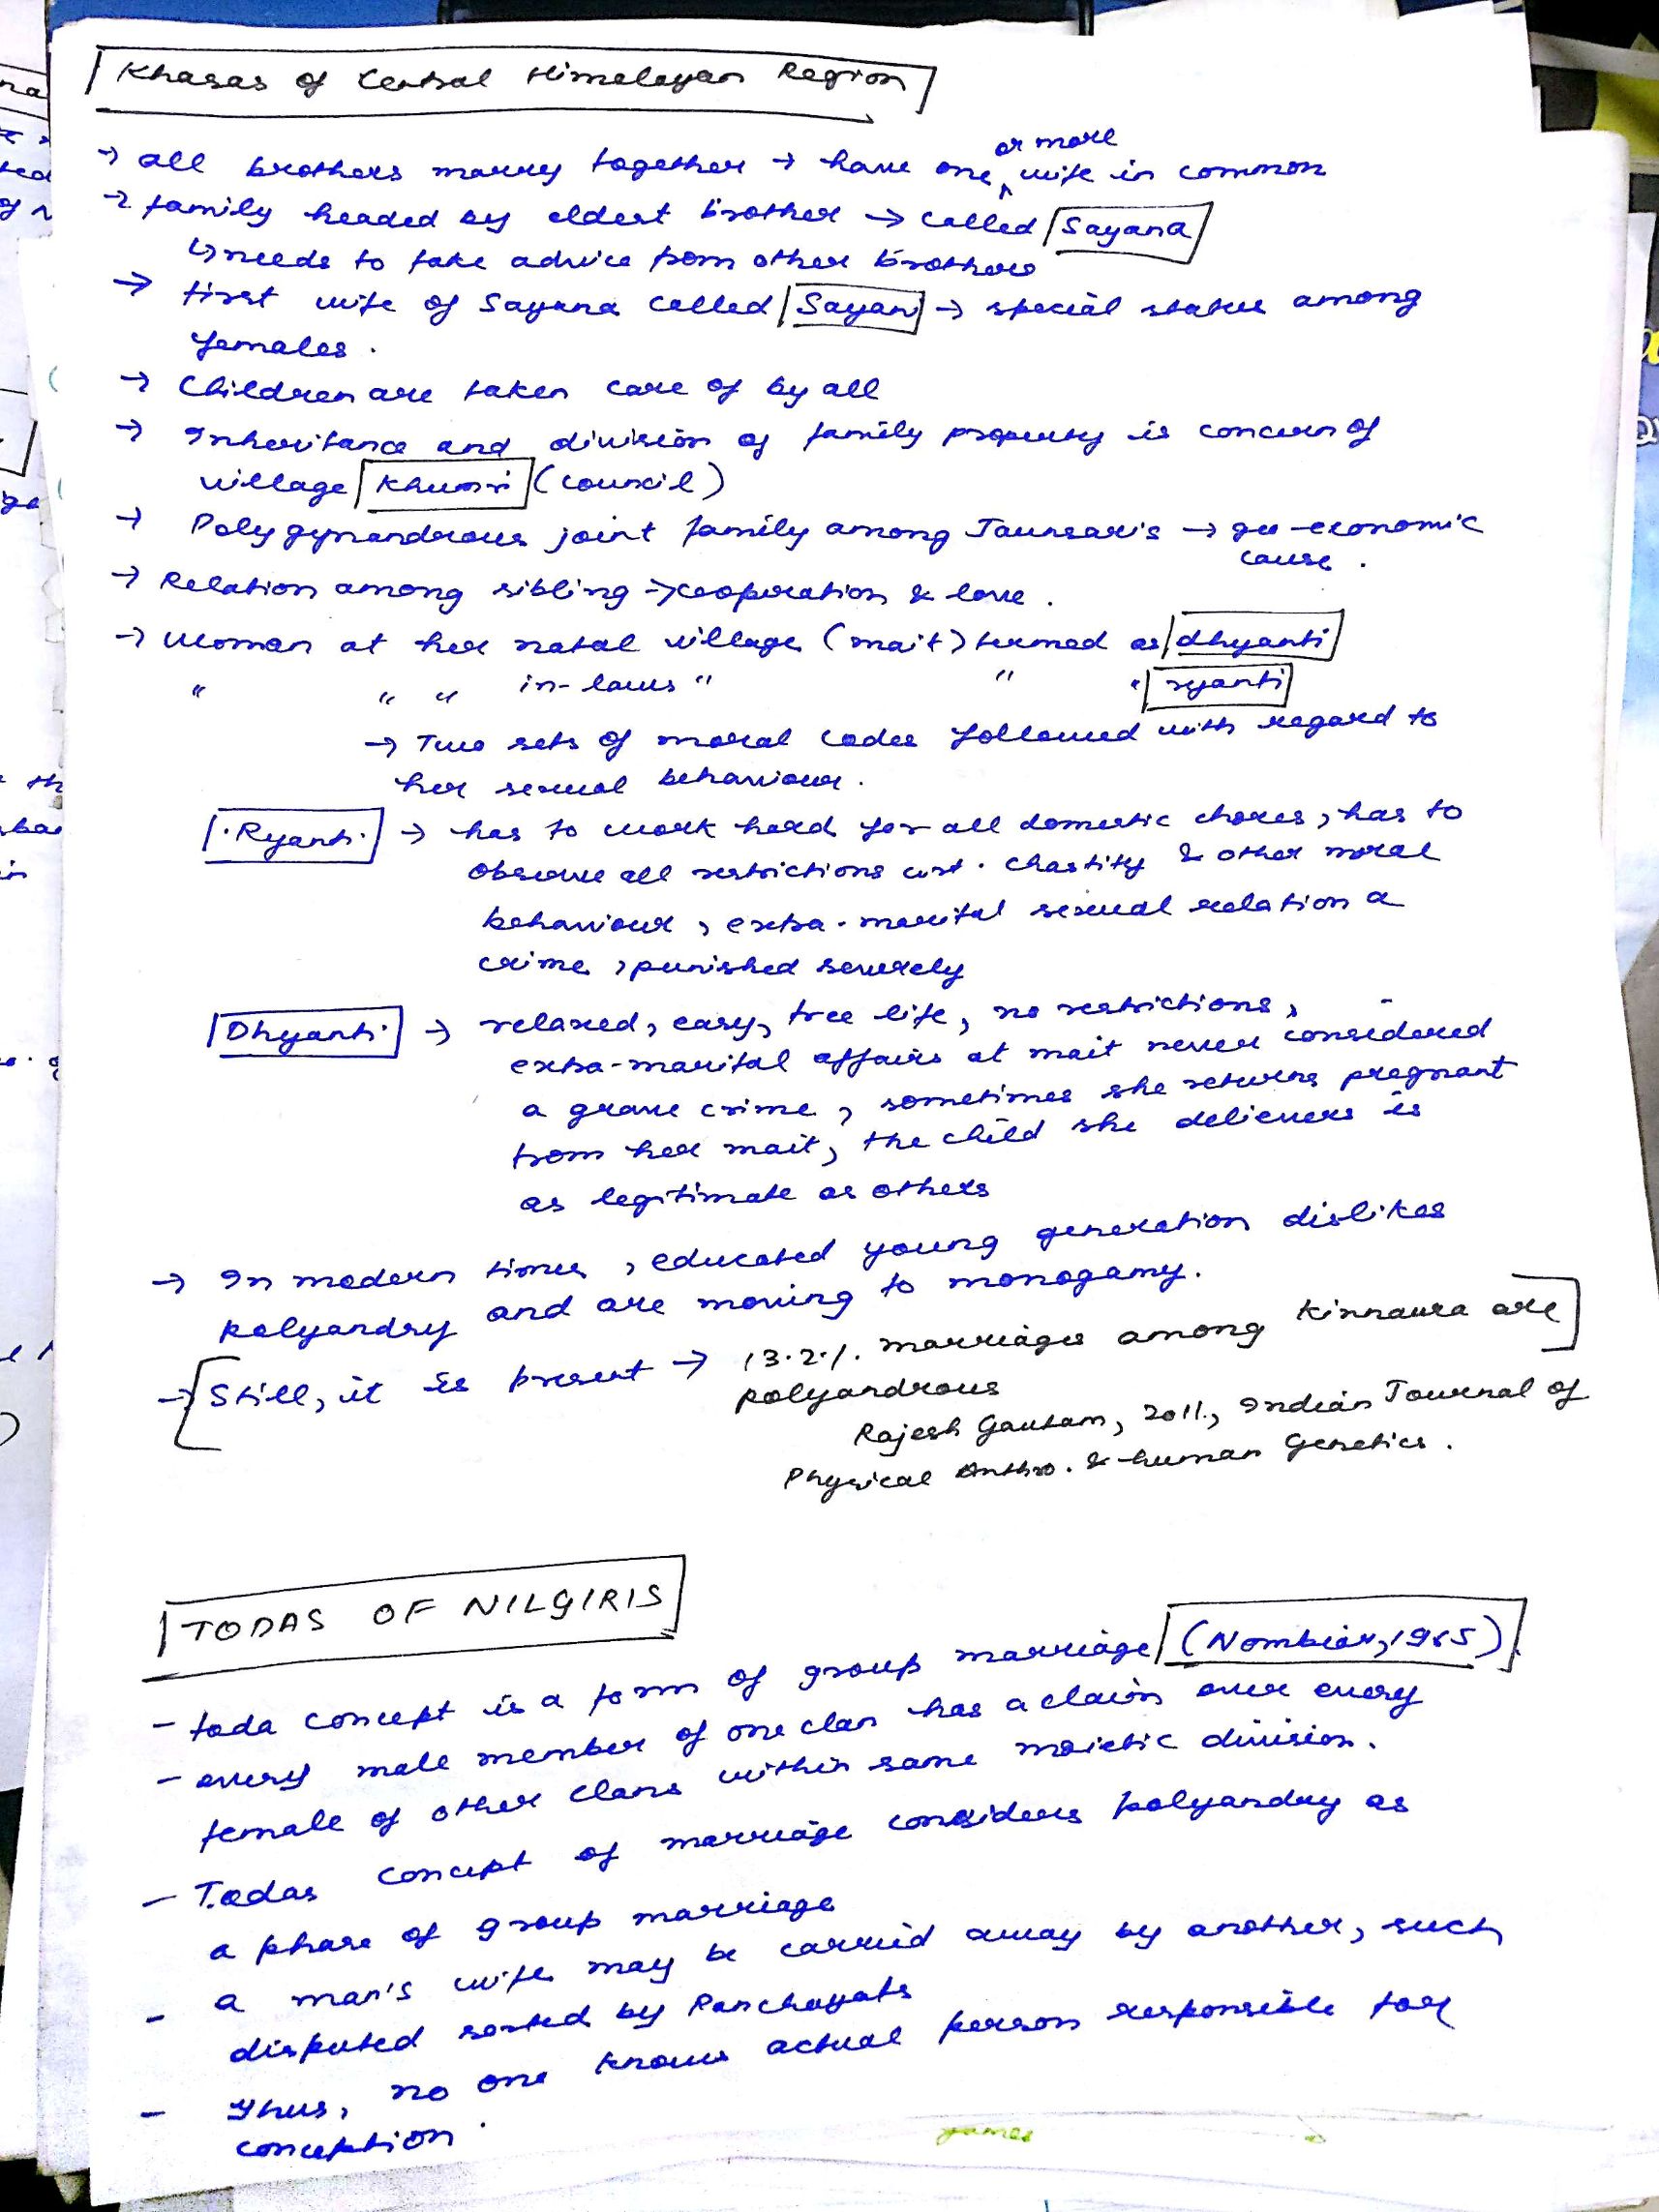 Khasas of Central Himalayan Region
→ all brothers marry together → have one or more wife in common
→ family headed by eldest brother → called Sayana
↳ needs to take advice from other brothers
→ first wife of Sayana called Sayani → special status among
females.
→ Children are taken care of by all
→ Inheritance and division of family property is concern of
village Khumri (council)
→ Polygynandrous joint family among Jaunsaris → geo-economic
cause.
→ Relation among sibling → cooperation & love.
→ Woman at her natal village (mait) termed as dhyanti
" " " in-laws " " " ryanti
→ Two sets of moral codes followed with regard to
her sexual behaviour.
Ryanti → has to work hard for all domestic chores, has to
observe all restrictions w.r.t. chastity & other moral
behaviour, extra-marital sexual relation a
crime, punished severely
Dhyanti → relaxed, easy, free life, no restrictions,
extra-marital affairs at mait never considered
a grave crime, sometimes she returns pregnant
from her mait, the child she delievers is
as legitimate as others
→ In modern times, educated young generation dislikes
polyandry and are moving to monogamy.
→ [Still, it is present → 13.2% marriages among Kinnaura are]
polyandrous
Rajesh Gautam, 2011, Indian Journal of
Physical Anthro. & human Genetics.
TODAS OF NILGIRIS
- toda concept is a form of group marriage (Nombiar, 1965).
- every male member of one clan has a claim over every
female of other clans within same moietic division.
- Todas concept of marriage considers polyandry as
a phase of group marriage
- a man's wife may be carried away by another, such
disputed sorted by Panchayats
- Thus, no one knows actual person responsible for
conception.
games